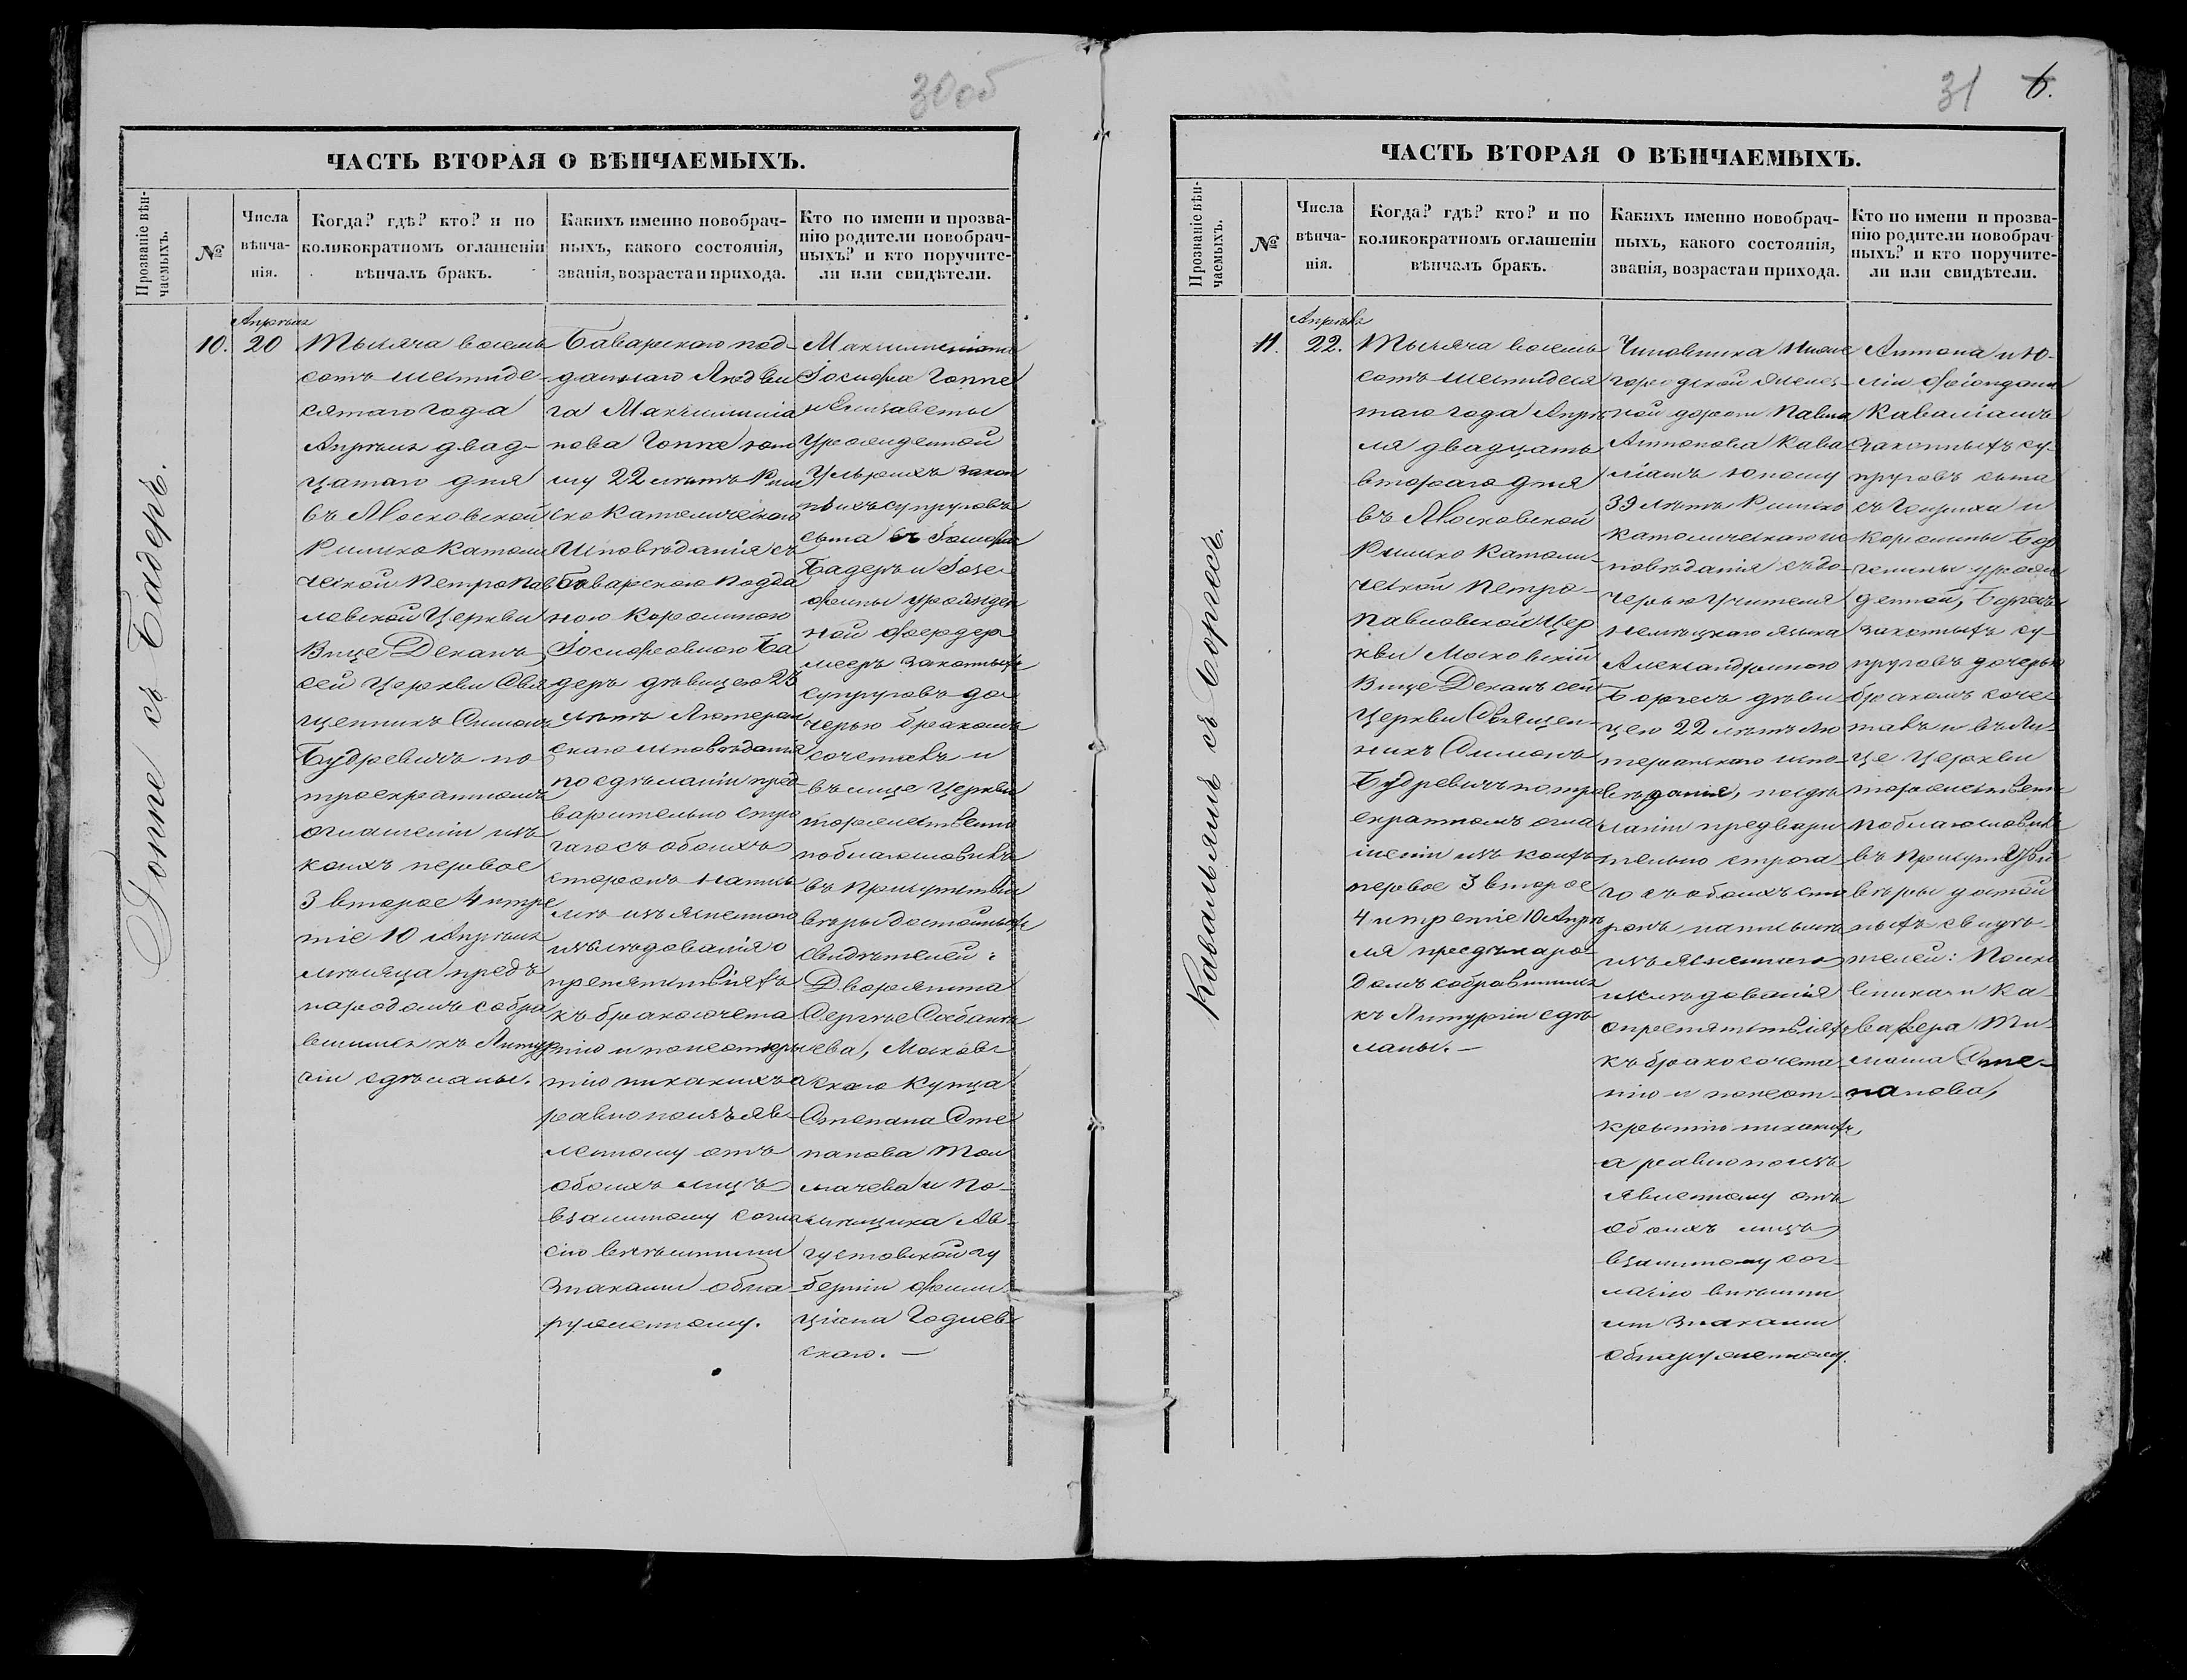 30 об
ЧАСТЬ ВТОРАЯ О ВѢНЧАЕМЫХЪ.
Прозваніе вѣн-
чаемыхъ.
№
Числа
вѣнча-
нія.
Когда? гдѣ? кто? и по
коликократномъ оглашеніи
вѣнчалъ бракъ.
Какихъ именно новобрач-
ныхъ, какого состоянія,
званія, возраста и прихода.
Кто по имени и прозва-
нію родители новобрач-
ныхъ? и кто поручите-
ли или свидѣтели.
Гоппе съ Бадеръ.
10.
Апрѣля
20
Тысяча восемь
сотъ шестиде-
сятаго года
Апрѣля двад-
цатаго дня
въ Московской
Римско Католи
ческой Петропав
ловской Церкви
Вице Деканъ
сей Церкви Свя
щенникъ Симонъ
Будревичъ по
троекратномъ
оглашеніи изъ
коихъ первое
3 второе 4 и тре
тіе 10 Апрѣля
мѣсяца предъ
народомъ собра
вшимся къ Литур
гіи сдѣланы.
Баварскаго под-
даннаго Людви
га Максимиліа
нова Гоппе юно
шу 22 лѣтъ Рим
ско Католическаго
Исповѣданія съ
Баварскою подда
ною Каролиною
Іосифовною Ба
деръ дѣвицею 23
лѣтъ Лютеран
скаго исповѣданія
по сдѣланіи пред
варительно стро
гаго съ обоихъ
сторонъ написьм
мѣ изъясненнаго
изслѣдованія о
препятствіяхъ
къ бракосочета
нію и по неоткры
тію никакихъ а
равно по изъяв-
ленному отъ
обоихъ лицъ
взаимному согла
сію внѣшними
знаками обна
руженному.
Максимиліана
Іосифа Гоппе
и Елизаветы
урожденной
закон
ныхъ супруговъ
сына съ Іосифа
Бадеръ и Іозе
фины урожден
ной
мееръ законныхъ
супруговъ до
черью бракомъ
сочеталъ и
въ лице Церкви
торжественно
поблагословилъ
въ присутствіи
вѣры достойныхъ
свидѣтелей:
Дворянина
Сергѣе
ева, Москов
скаго Купца
Степана Сте
панова Тол
мачева и По-
мѣщика Ав-
густовской гу
берніи Фели
ціана Годлев
скаго. —
31 6.
ЧАСТЬ ВТОРАЯ О ВѢНЧАЕМЫХЪ.
Прозваніе вѣн-
чаемыхъ.
№
Числа
вѣнча-
нія.
Когда? гдѣ? кто? и по
коликократномъ оглашеніи
вѣнчалъ бракъ.
Какихъ именно новобрач-
ныхъ, какого состоянія,
званія, возраста и прихода.
Кто по имени и прозва-
нію родители новобрач-
ныхъ? и кто поручите-
ли или свидѣтели.
Кавальямъ съ Боргесъ.
11.
Апрѣля
22.
Тысяча восемь
сотъ шестидеся
таго года Апрѣ
ля двадцать
втораго дня
въ Московской
Римско Католи-
ческой Петро-
павловской Цер
кви Московскій
Вице Деканъ сей
Церкви Священ-
никъ Симонъ
Будревичъ по тро
екратномъ огла
шеніи изъ коихъ
первое 3 второе
4 и третіе 10 Апрѣ
ля предъ наро-
домъ собравшимся
къ Литургіи сдѣ
ланы. —
Чиновника Ниже
городской желѣз-
ной дороги Павла
Антонова Кава
ліамъ юношу
39 лѣтъ Римско
Католическаго ис
повѣданія съ до-
черью Учителя
Нѣмецкаго языка
Александриною
Боргесъ дѣви
цею 22 лѣтъ Лю
теранскаго испо-
вѣданія, по сдѣ
ланіи предвари
тельно строга
го съ обоихъ сто
ронъ написьмѣ
изъясненнаго
изслѣдованія
о препятствіяхъ
къ бракосочета-
нію и по неот-
крытію никакихъ,
а равно по изъ
явленному отъ
обоихъ лицъ
взаимному сог-
ласію внѣшни
ми знаками
обнаруженному.
Антона и Ю-
ліи
Каваліамъ
законныхъ су-
пруговъ сына
съ Генриха и
Каролины
урож
денной, Боргесъ
законныхъ су-
пруговъ дочерью
бракомъ соче
талъ и въ ли-
це Церкви
торжественн
поблагословилъ
въ присутствіи
вѣры достой
ныхъ свидѣ-
телей: Полко
вника и Ка-
валера Ти-
моша Сте-
панова,